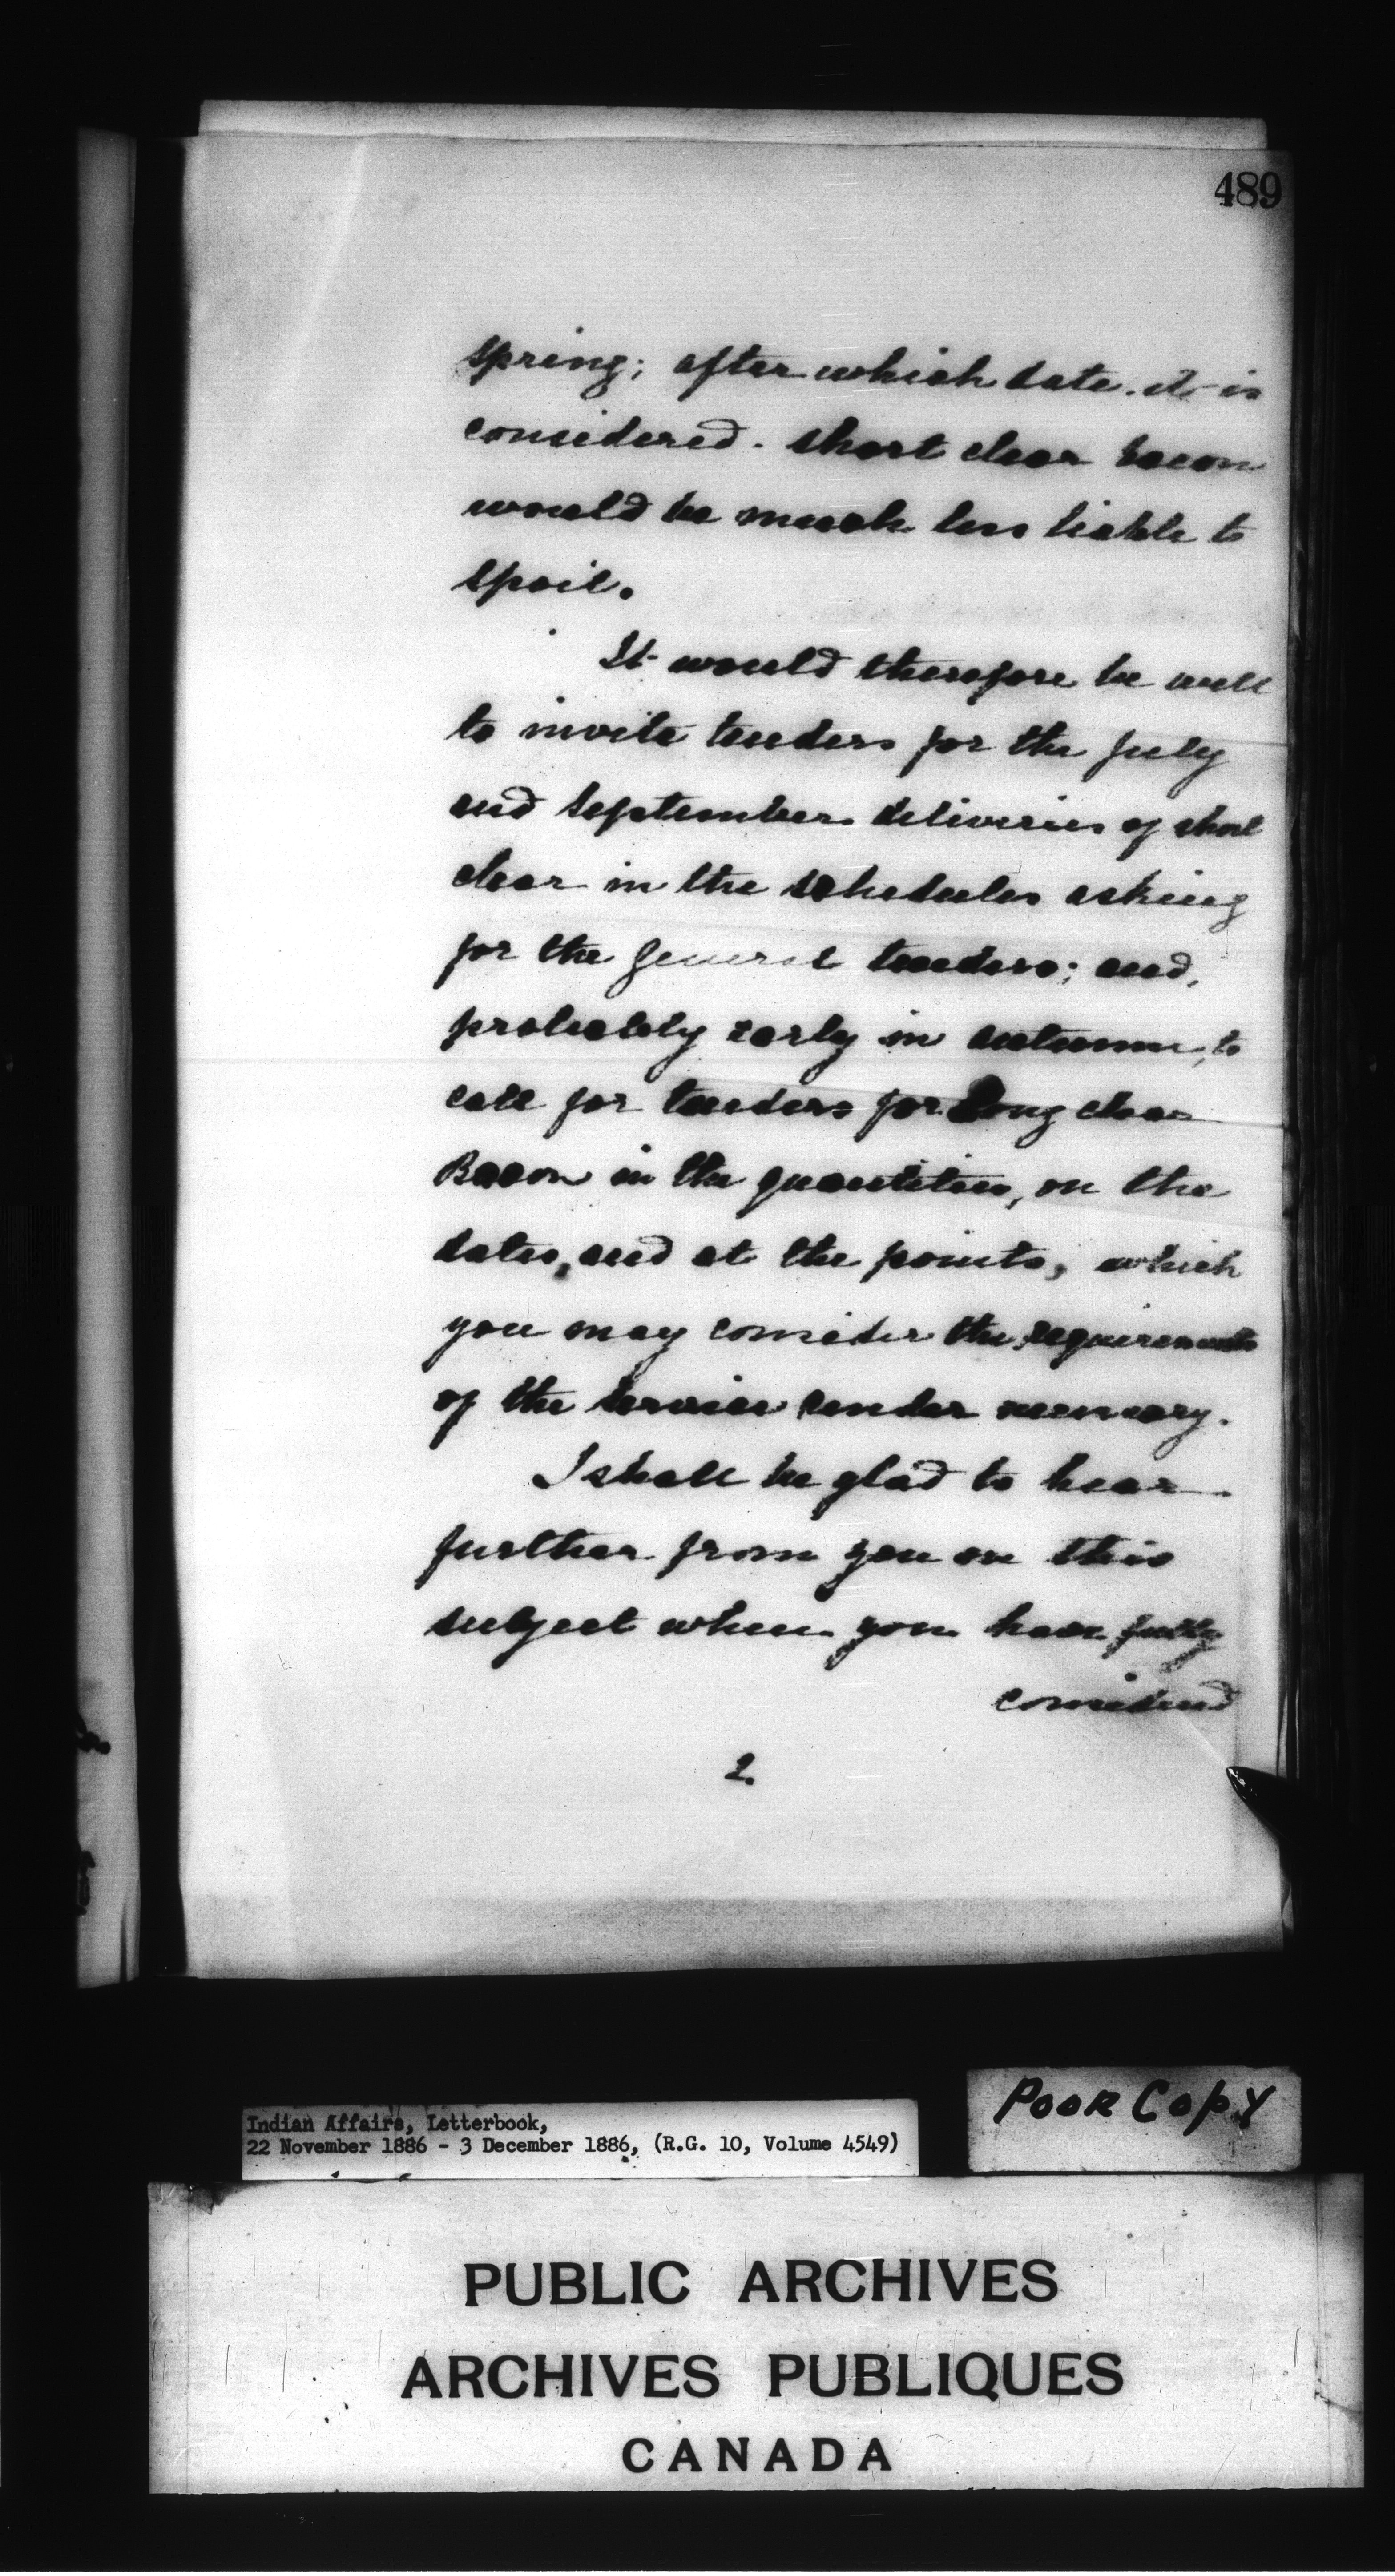 489
spring; after which date. it is
considered. short clear bacon
would be much less liable to
spoil.
It would therefore be well
to invite tenders for the July
and September deliveries of short
clear in the schedules asking
for the general tenders; and,
probably early in autumn, to
call for tenders for Long clear
Bacon in the quantities, on the
dates, and at the points, which
you may consider the requirements
of the service render necessary.
I shall be glad to hear
further from you on this
subject when you have fully
considered
2.
Indian Affairs, Letterbook,
22 November 1886 - 3 December 1886, (R.G. 10, Volume 4549)
POOR COPY
PUBLIC ARCHIVES
ARCHIVES PUBLIQUES
CANADA